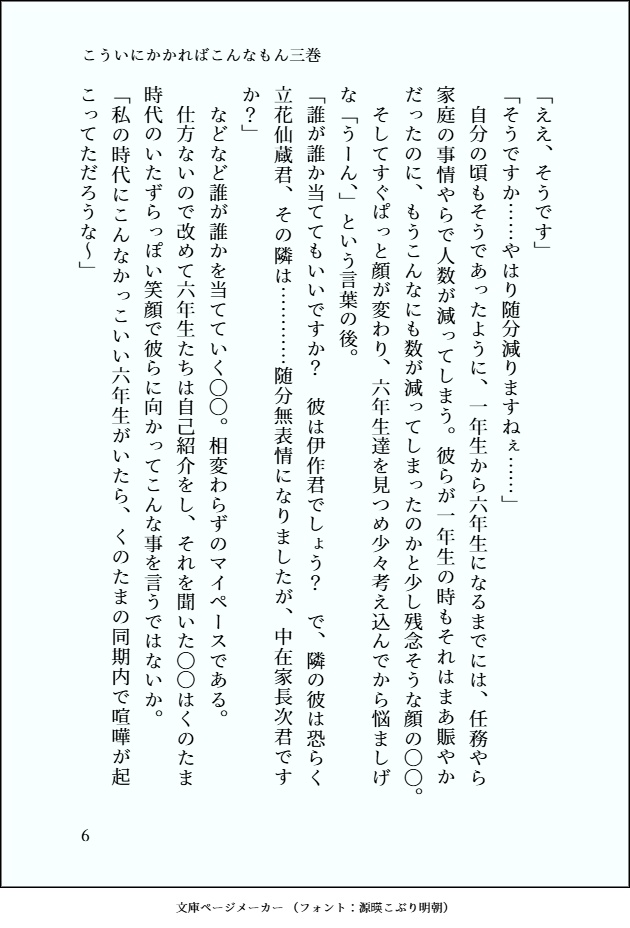 こういにかかればこんなもん三巻
「ええ、そうです」
「そうですか……やはり随分減りますねぇ……」
　自分の頃もそうであったように、一年生から六年生になるまでには、任務やら
家庭の事情やらで人数が減ってしまう。彼らが一年生の時もそれはまあ賑やか
だったのに、もうこんなにも数が減ってしまったのかと少し残念そうな顔の〇〇。
　そしてすぐぱっと顔が変わり、六年生達を見つめ少々考え込んでから悩ましげ
な「うーん、」という言葉の後。
「誰が誰か当ててもいいですか？　彼は伊作君でしょう？　で、隣の彼は恐らく
立花仙蔵君、その隣は…………随分無表情になりましたが、中在家長次君です
か？」
　などなど誰が誰かを当てていく〇〇。相変わらずのマイペースである。
　仕方ないので改めて六年生たちは自己紹介をし、それを聞いた〇〇はくのたま
時代のいたずらっぽい笑顔で彼らに向かってこんな事を言うではないか。
「私の時代にこんなかっこいい六年生がいたら、くのたまの同期内で喧嘩が起
こってただろうな〜」
6
文庫ページメーカー（フォント：源暎こぶり明朝）